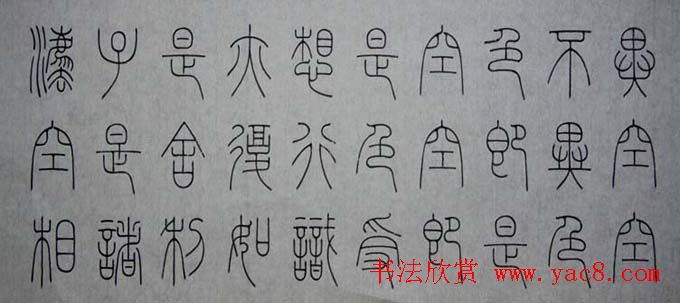 異空空
不異色
色即是
空空即
是色受
想行識
亦復如
是舍利
子是諸
灋空相
书法欣赏 www.yac8.com